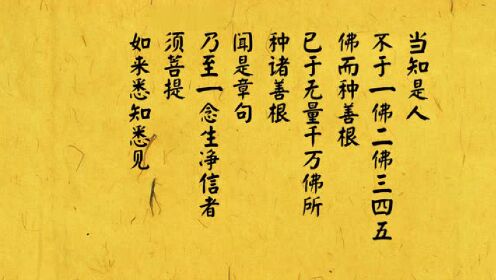 当知是人
不于一佛二佛三四五
佛而种善根
已于无量千万佛所
种诸善根
闻是章句
乃至一念生净信者
须菩提
如来悉知悉见